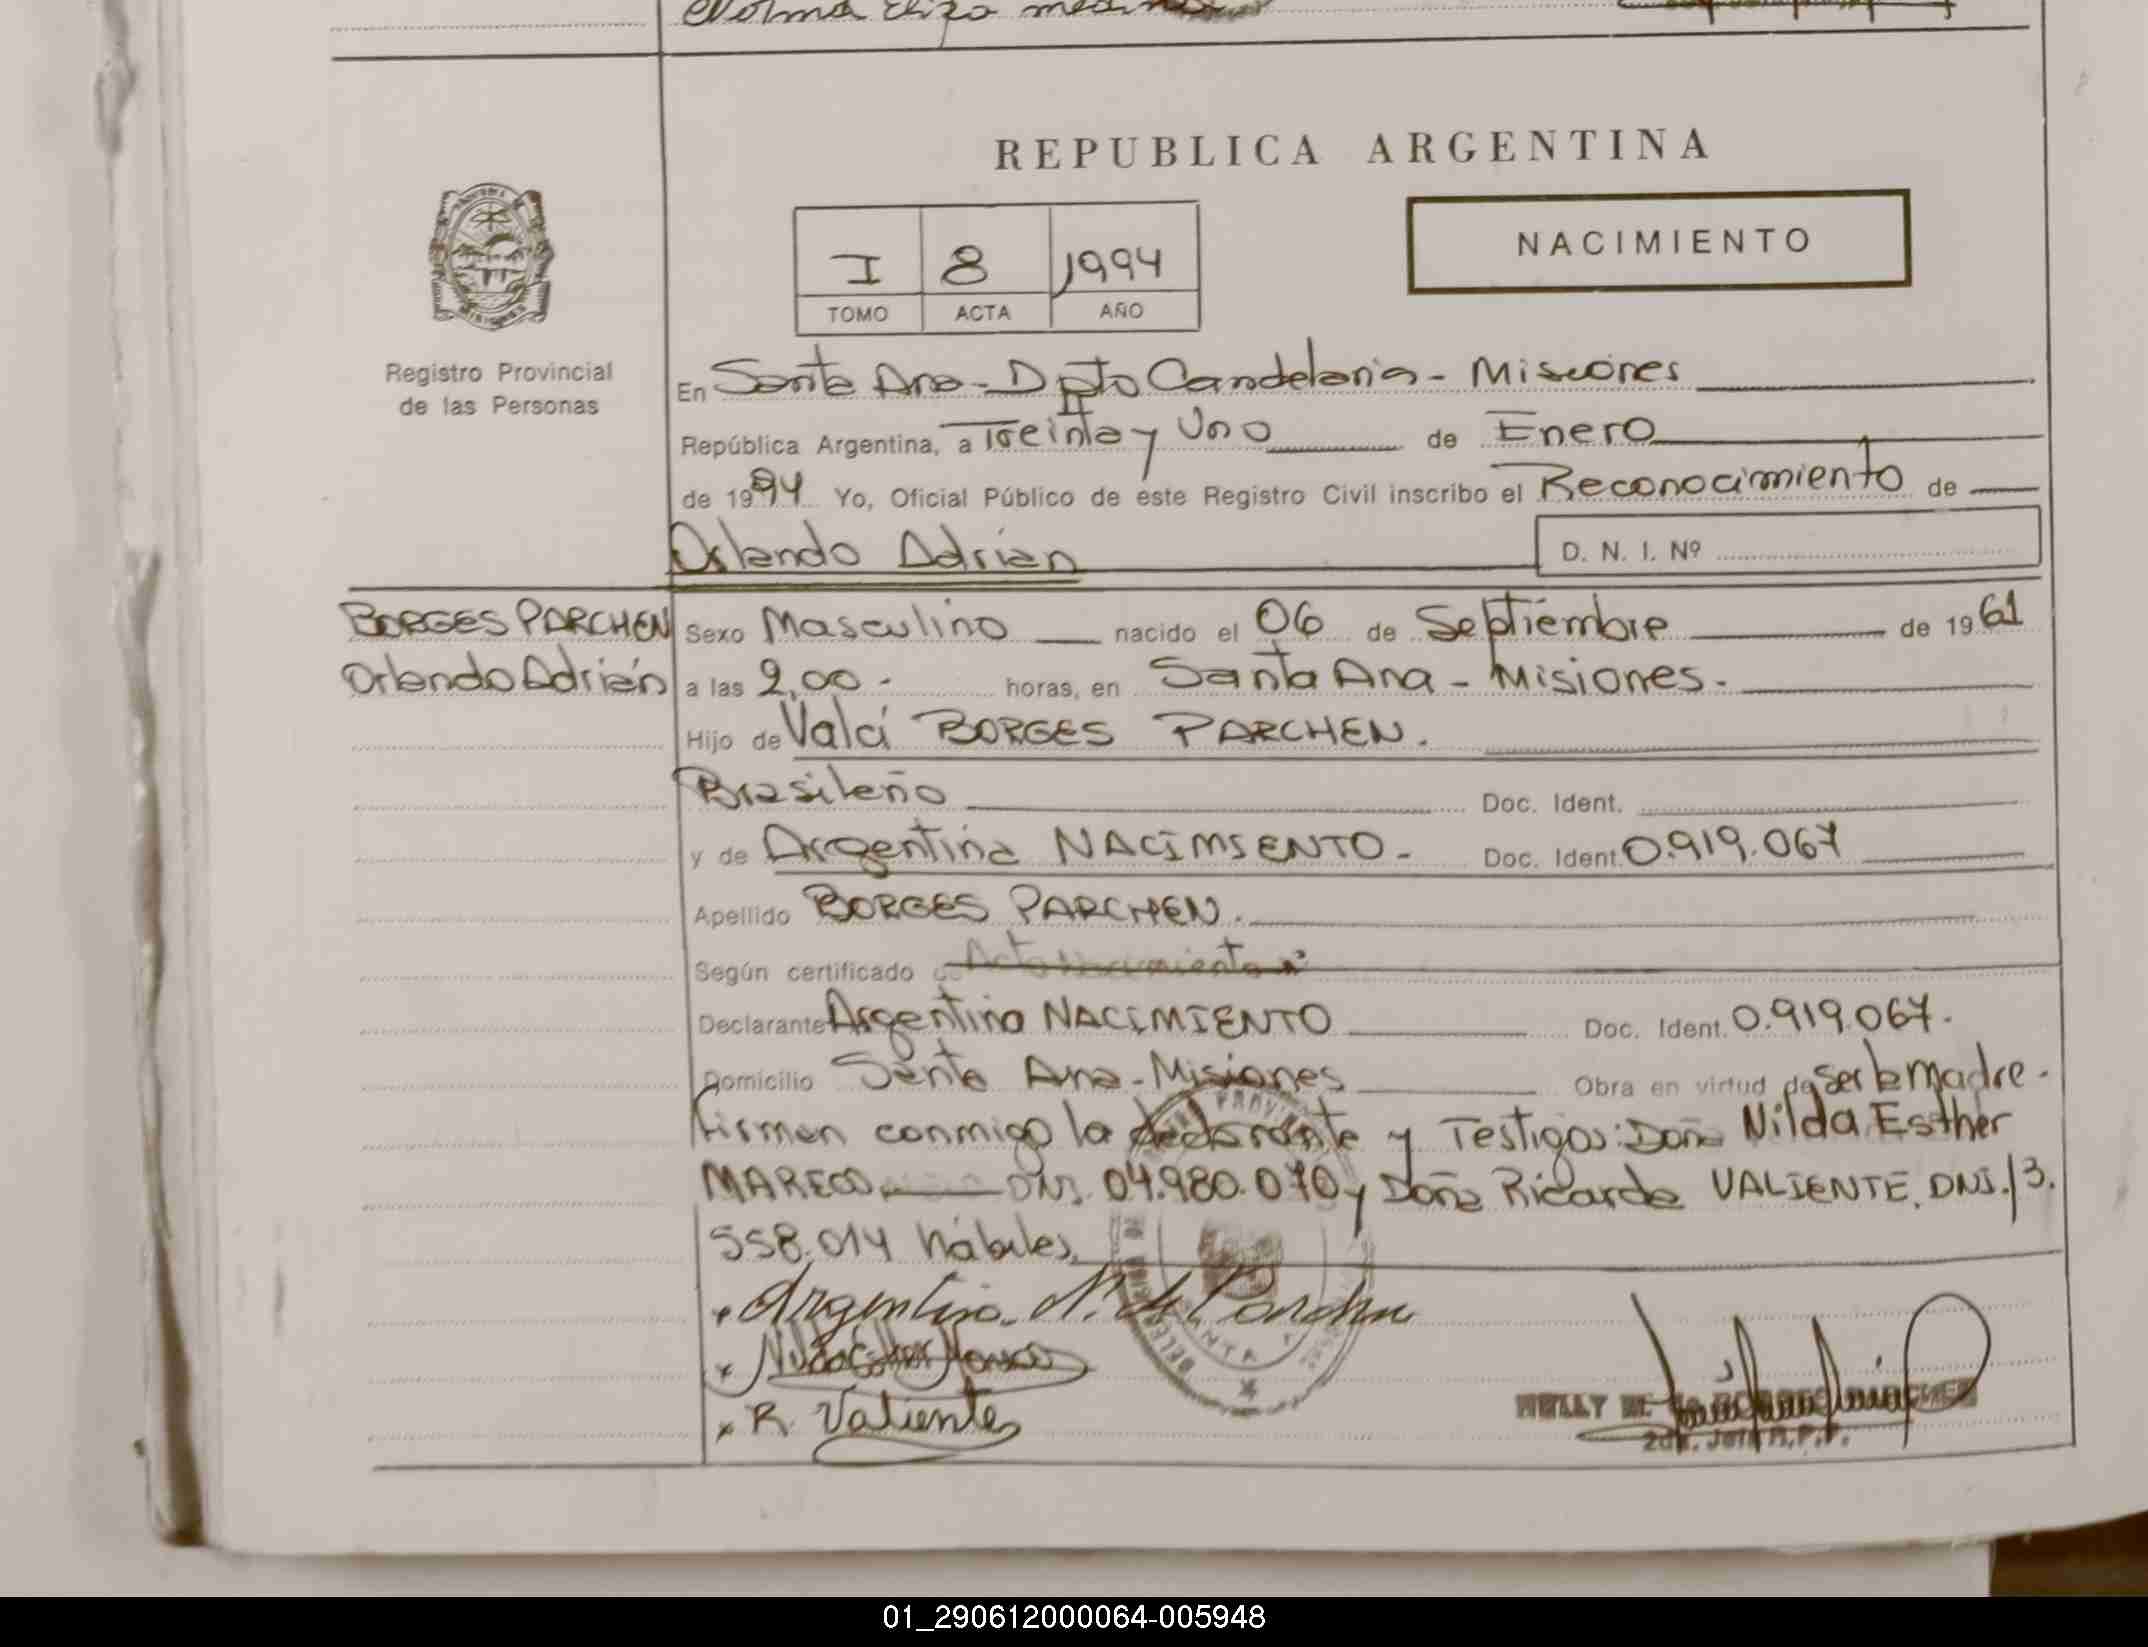 Norma
REPUBLICA ARGENTINA
NACIMIENTO
I 8 1994
TOMO ACTA AÑO
Registro Provincial
de las Personas
En Santa Ana - Dpto Candelaria - Misiones
República Argentina, a Treinta y Uno de Enero
de 1994 Yo, Oficial Público de este Registro Civil inscribo el Reconocimiento de
Orlando Adrian
D. N. I. Nº
BORGES PARCHEN
Orlando Adrián
Sexo Masculino nacido el 06 de Septiembre de 1961
a las 2,00 - horas, en Santa Ana - Misiones.
Hijo de Valci BORGES PARCHEN.
Brasileño Doc. Ident.
y de Argentina NACIMIENTO - Doc. Ident. 0.919.067
Apellido BORGES PARCHEN.
Según certificado de Acta Nacimiento
Declarante Argentina NACIMIENTO Doc. Ident. 0.919.067.
Domicilio Santa Ana - Misiones Obra en virtud de ser la madre.
Firman conmigo la declarante y Testigos: Doña Nilda Esther
MARECO DNI. 04.980.070 y Doña Ricarda VALIENTE. DNI. 13.
558.014 hábiles.
x Argentina N. de Parchen
x Nilda Esther Mareco
x R. Valiente
NELLY
2da. Jefe R.P.P.
01_290612000064-005948